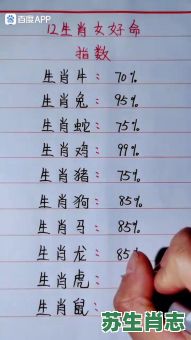 百度APP
12生肖女好命
指数
生肖牛：70%
生肖兔：95%
生肖蛇：75%
生肖鸡：99%
生肖猪：75%
生肖狗：85%
生肖马：85%
生肖龙：85%
生肖虎：
生肖鼠：
苏生肖志